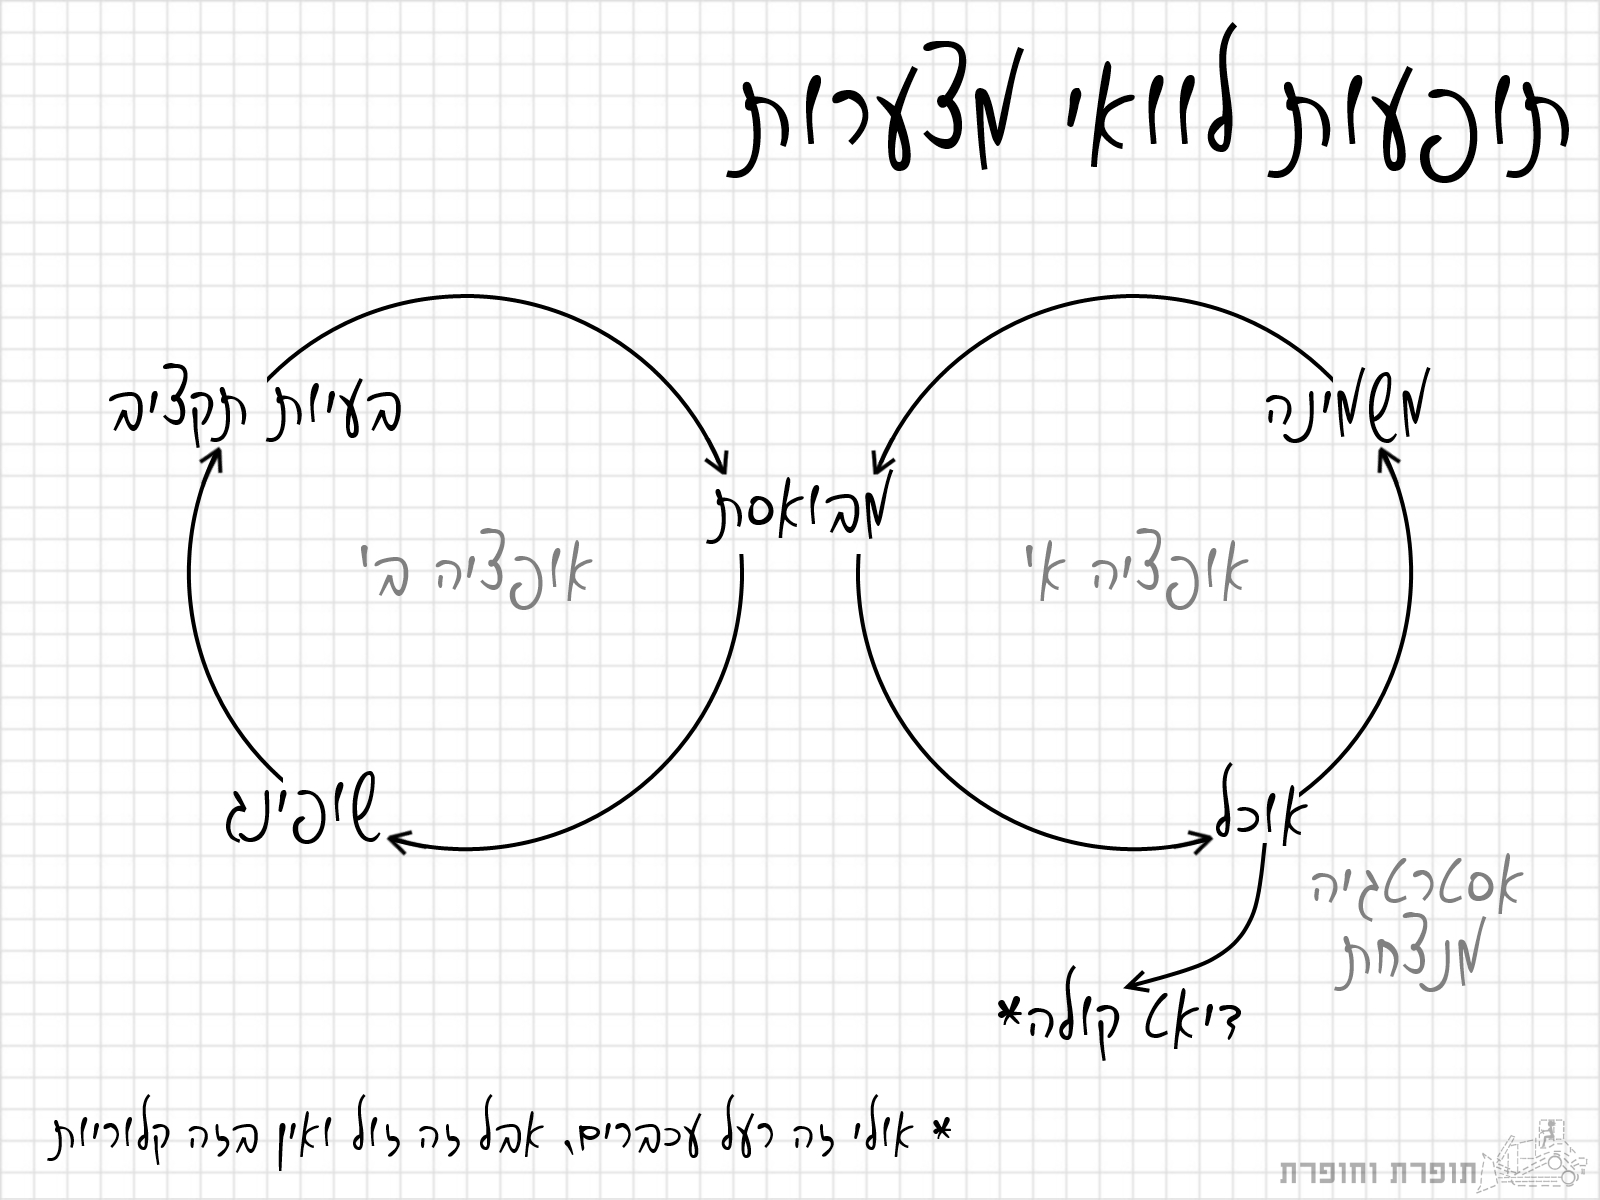 תופעות לוואי מצערות
משמינה
בעיות תקציב
מבואסת
אופציה א'
אופציה ב'
אוכל
שופינג
אסטרטגיה
מנצחת
דיאט קולה*
* אולי זה רעל עכברים, אבל זה זול ואין בזה קלוריות
תופרת וחופרת